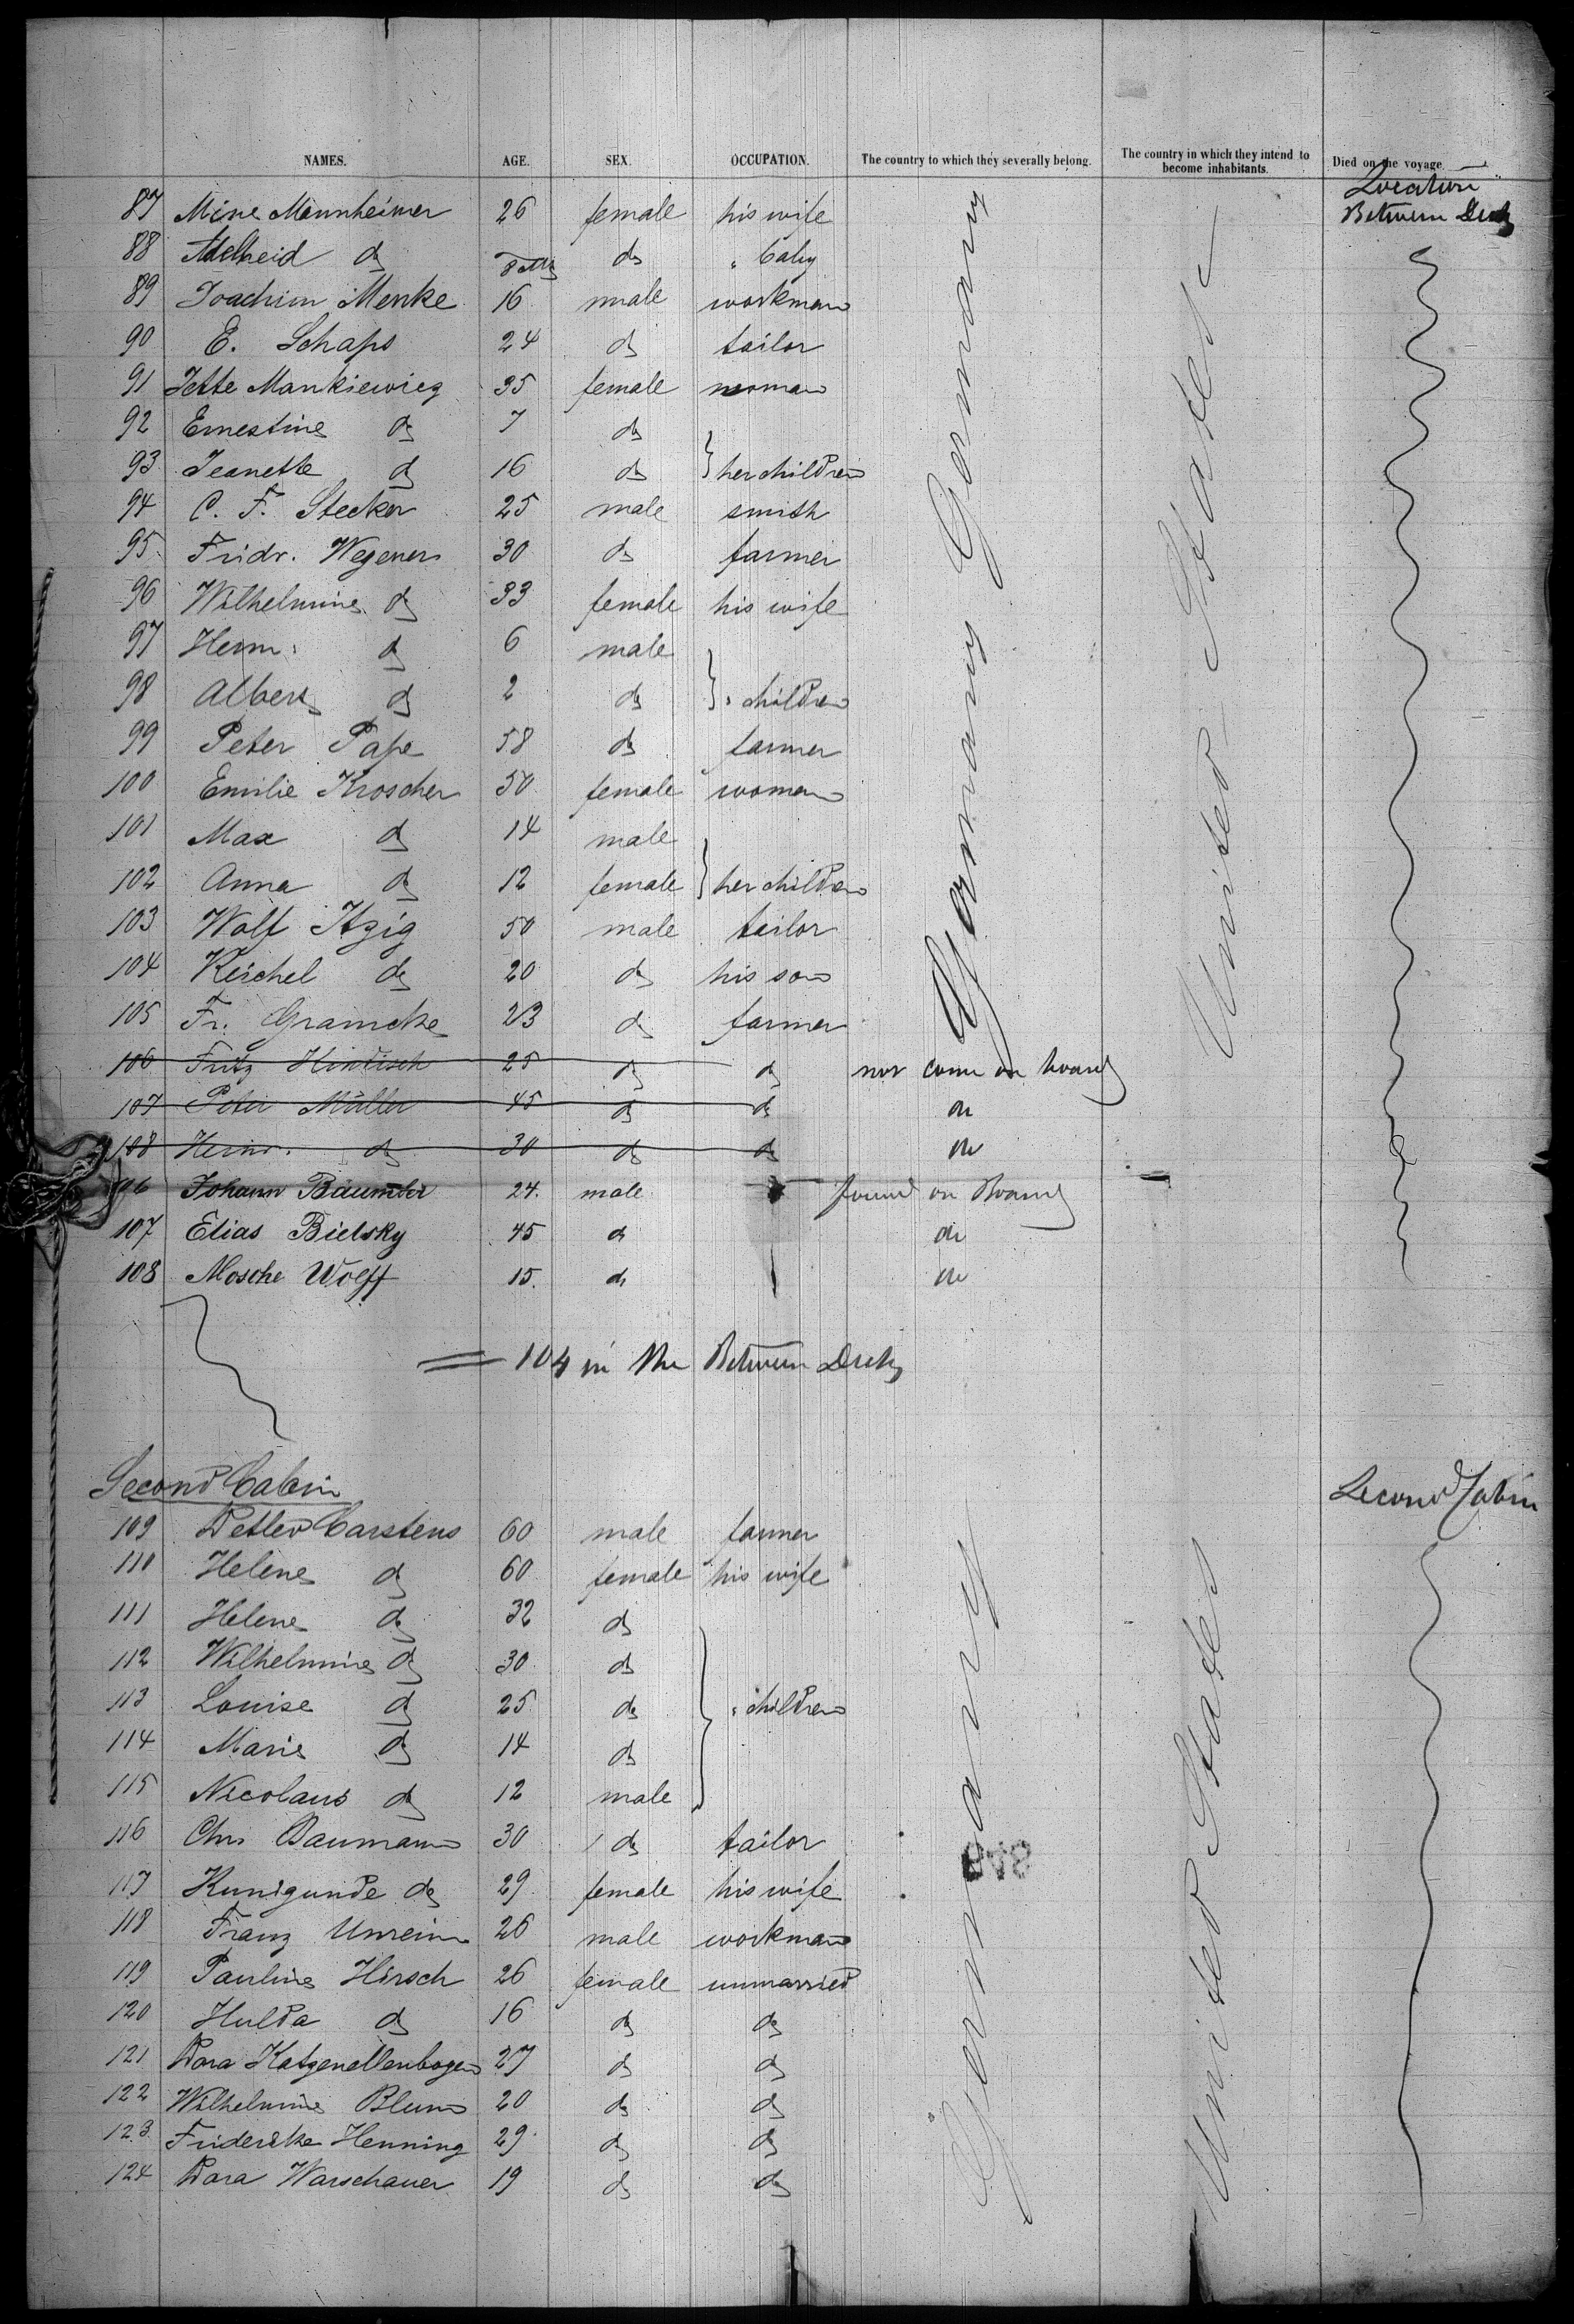 NAMES. AGE. SEX. OCCUPATION. The country to which they severally belong. The country in which they intend to become inhabitants. Died on the voyage.
Location
87 Mine Mannheimer 26 female his wife Between Deck
88 Adelheid do 8 do " baby
89 Joachim Menke 16 male workman
90 E. Schaps 24 do tailor
91 Jette Mankiewicz 35 female woman
92 Ernestine do 7 do
93 Jeanette do 16 do } her children
94 C. F. Stecker 25 male smith
95 Fridr. Wegener 30 do farmer
96 Wilhelmine do 33 female his wife
97 Herm. do 6 male
98 Albert do 2 do } " children
99 Peter Pape 58 do farmer
100 Emilie Kroscher 50 female woman
101 Max do 14 male
102 Anna do 12 female } her children
103 Wolf Itzig 50 male tailor
104 Reichel do 20 do his son
105 Fr. Gramcke 23 do farmer
Germany Germany
United States
106 Fritz Hindisch 25 do do not come on board
107 Peter Müller 45 do do do
108 Heinr. do 30 do do do
106 Johann Bäumler 24. male found on Board
107 Elias Bielsky 45 do do
108 Mosche Wolff 15. do do
= 104 in the Between Deck
Second Cabin Second Cabin
109 Detlev Carstens 60 male farmer
110 Helene do 60 female his wife
111 Helene do 32 do
112 Wilhelmine do 30 do
113 Louise do 25 do } " children
114 Marie do 14 do
115 Nicolaus do 12 male
116 Chr. Baumann 30 do tailor
117 Kunigunde do 29 female his wife
118 Franz Unrein 26 male workman
119 Pauline Hirsch 26 female unmarried
120 Hulda do 16 do do
121 Dora Katzenellenbogen 27 do do
122 Wilhelmine Blum 20 do do
123 Friderike Henning 29 do do
124 Dora Warschauer 19 do do
Germany
United States